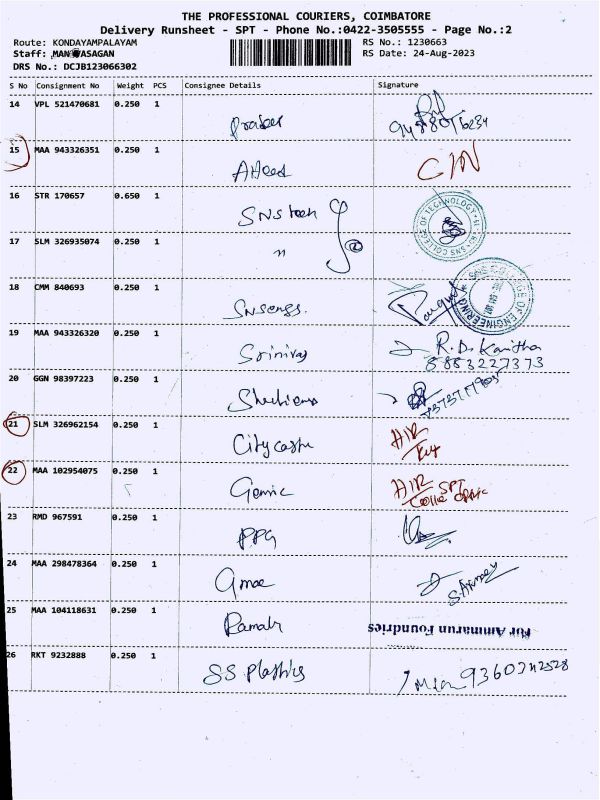 THE PROFESSIONAL COURIERS, COIMBATORE
Delivery Runsheet - SPT - Phone No.:0422-3505555 - Page No.:2
Route: KONDAYAMPALAYAM RS No.: 1230663
Staff: RS Date: 24-Aug-2023
DRS No.: DCJB123066302
S No Consignment No Weight PCS Consignee Details Signature
14 VPL 521470681 0.250 1
15 MAA 943326351 0.250 1 CIN
16 STR 170657 0.650 1 SNS tech SNS COLLEGE OF TECHNOLOGY
17 SLM 326935074 0.250 1 "
18 CMM 840693 0.250 1 SNS engg. OF ENGINEERING
19 MAA 943326320 0.250 1 Srinivas R.D. Kavitha
8883227373
20 GGN 98397223 0.250 1
21 SLM 326962154 0.250 1 City castu
22 MAA 102954075 0.250 1 Gemic SPT
23 RMD 967591 0.250 1 PPG
24 MAA 298478364 0.250 1
25 MAA 104118631 0.250 1 For Ammarun Foundries
26 RKT 9232888 0.250 1 SS Plastics